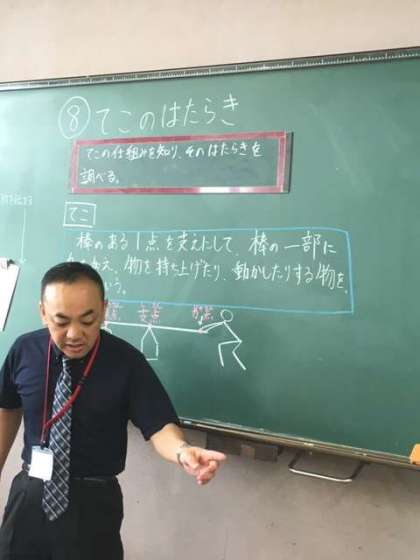 ⑧ てこのはたらき
てこの仕組みを知り、そのはたらきを
調べる。
てこ
棒のある1点を支えにして、棒の一部に
え、物を持ち上げたり、動かしたりする物を、
いう。
点 支点 力点